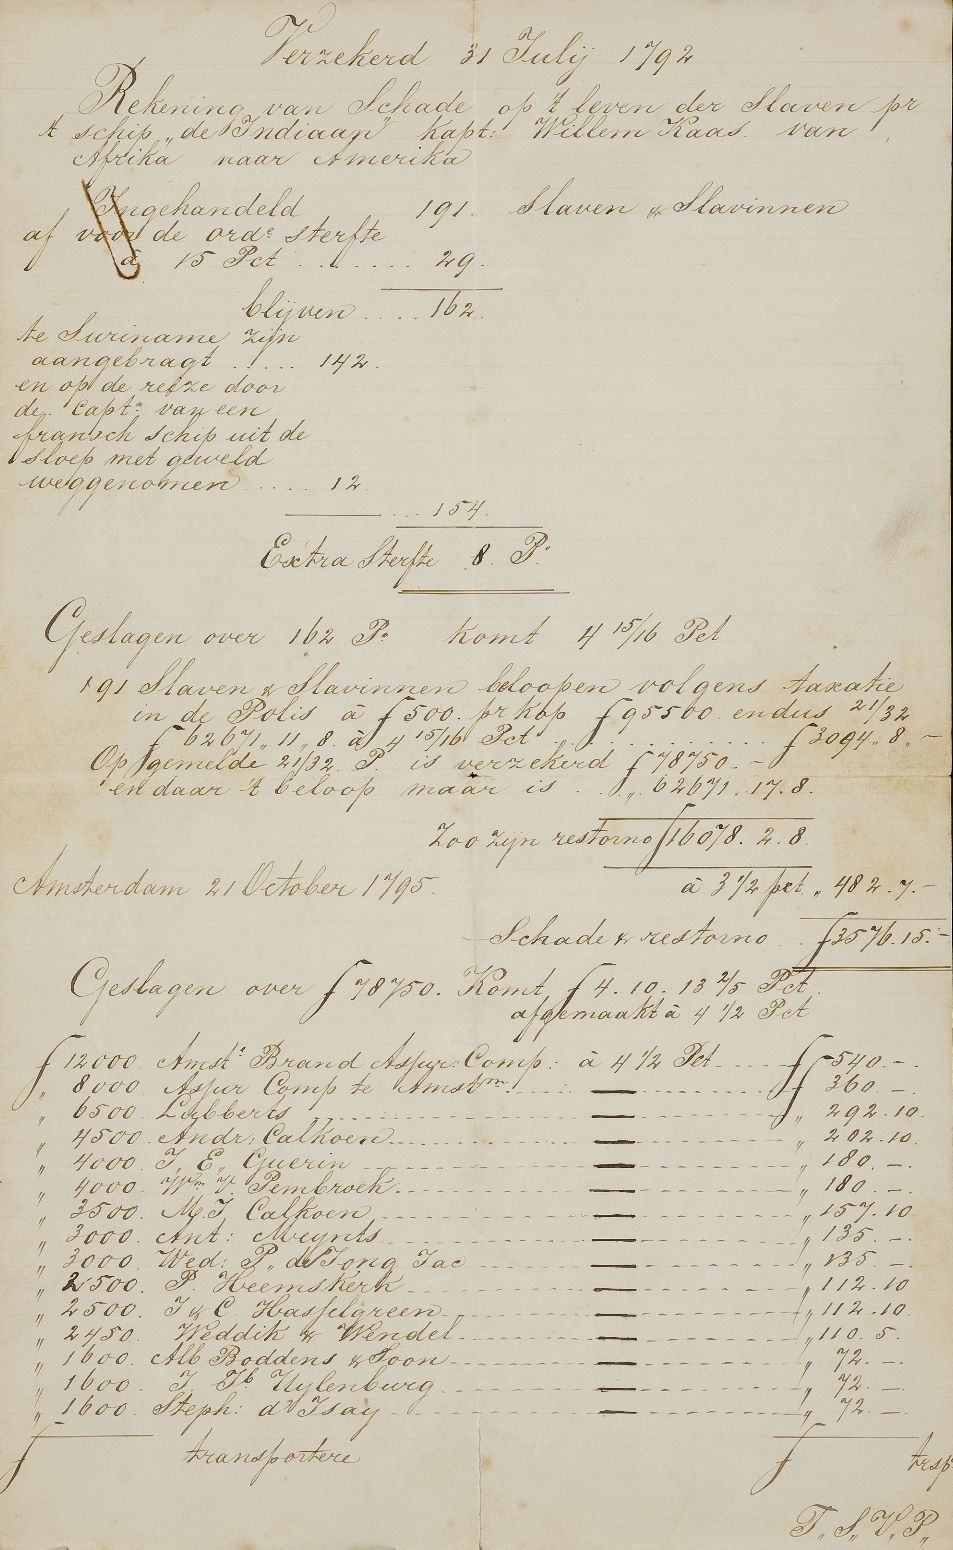 Verzekerd 31 Julij 1792
Rekening van Schade op 't leven der Slaven pr
't schip „de Indiaan" Kapt: Willem Kaas van
Afrika naar Amerika
Ingehandeld 191. Slaven & Slavinnen
af voor de ord.e sterfte
à 15 Pct ....... 29.
blijven .... 162.
te Suriname zijn
aangebragt ..... 142.
en op de reize door
de Capt.n van een
fransch schip uit de
sloep met geweld
weggenomen ..... 12.
... 154.
Extra Sterfte 8. P.s
Geslagen over 162 P.s komt 4 15/16 Pct
191 Slaven & Slavinnen beloopen volgens taxatie
in de Polis à ƒ500. pr kop ƒ95500 en dus 21/32
ƒ62671„11„8. à 4 15/16 Pct „ .......... ƒ3094„8„-
Op gemelde 21/32. P. is verzekerd ƒ78750.-
en daar 't beloop maar is .. „ 62671.17.8.
Zoo zijn restorno ƒ16078.2.8.
Amsterdam 21 October 1795. à 3 1/2 pct „ 482.7.-
Schade & restorno .. ƒ3576.15.-
Geslagen over ƒ78750. Komt ƒ4.10.13 2/5 Pct.
afgemaakt à 4 1/2 Pct
ƒ12000 Amst.e Brand Assur: Comp: à 4 1/2 Pct ..... ƒ540.-
„ 8000 Assur Comp te Amst.m — ƒ360.-
„ 6500 Lubberts — „ 292.10.
„ 4500. Andr: Calkoen — „ 202.10.
„ 4000. J„ E„ Guerin — „ 180.-.
„ 4000. W.m V. Pembroek — „ 180.-.
„ 3500. M.J Calkoen — „ 157.10
„ 3000. Ant: Meynts — „ 135.-.
„ 3000. Wed: P„ de Jong Jac — „ 135.-.
„ 2500. P. Heemskerk — „ 112.10
„ 2500. J & C Hasselgreen — „ 112.10.
„ 2450. Weddik & Wendel — „ 110.5.
„ 1600. Alb Boddens & Soon — „ 72.-.
„ 1600. J Jb. Uylenburg — „ 72.-.
„ 1600. Steph: d' Isay — „ 72.-.
ƒ transportere ƒ trsp
T„ S„ V„ P„